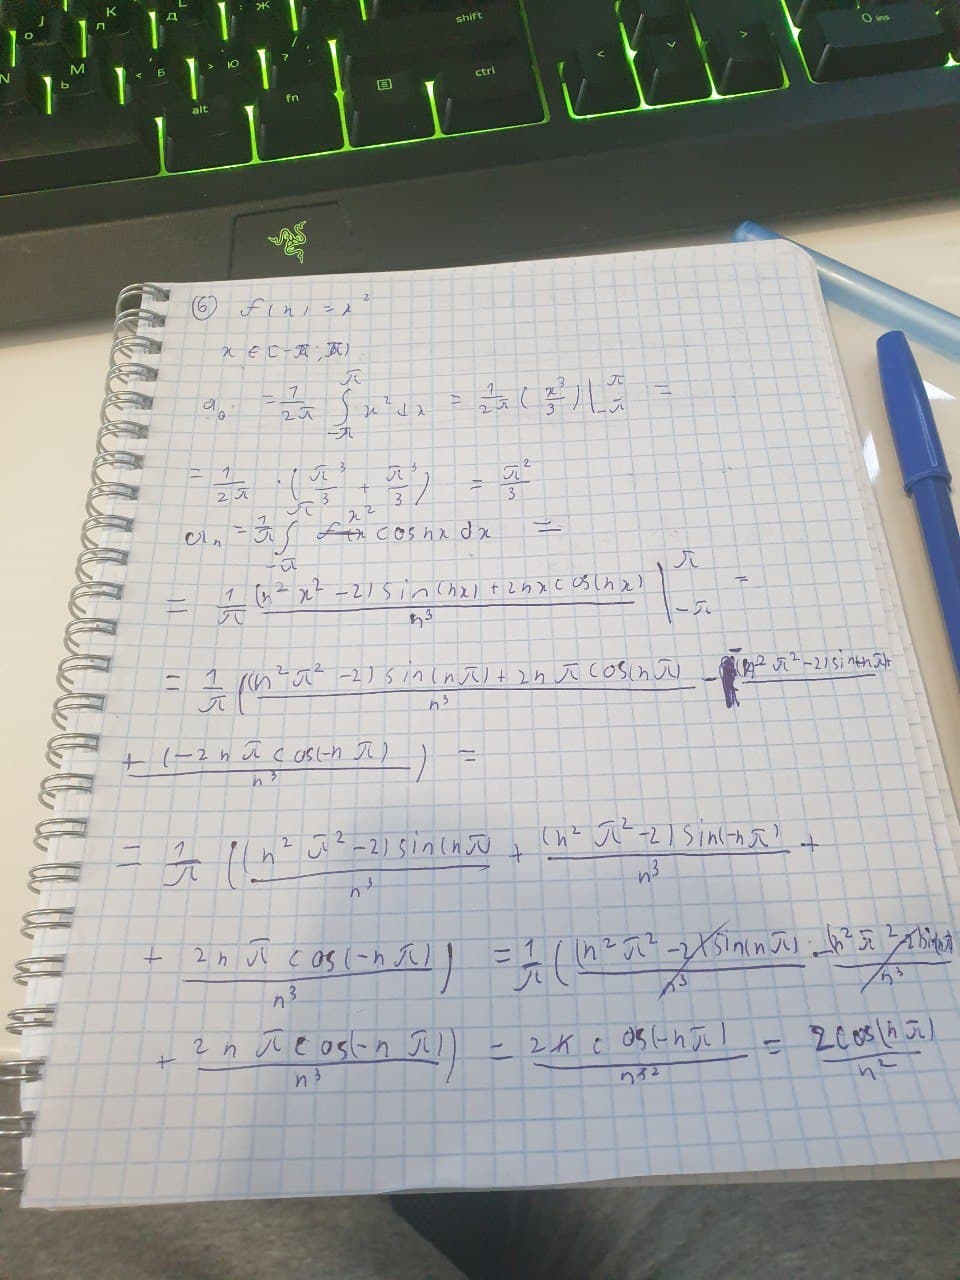 J K Л Д Ж shift 0 ins
О
N M Ь < Б > Ю / ? < >
alt fn ctrl
⑥ f(x) = x²
x ∈ [-π; π)
a₀ = 1/2π ∫_{-π}^{π} x² dx = 1/2π (x³/3)|_{-π}^{π} =
= 1/2π · (π³/3 + π³/3) = π²/3
aₙ = 1/π ∫_{-π}^{π} x² cos nx dx =
= 1/π ((n²x² -2) sin(nx) + 2nx cos(nx))/n³ |_{-π}^{π} =
= 1/π (((n²π² -2) sin(nπ) + 2nπ cos(nπ))/n³ - ((n²π² -2) sin(-nπ) +
+ (-2nπ cos(-nπ))/n³) =
= 1/π (((n²π² -2) sin(nπ)/n³ + (n²π² -2) sin(-nπ)/n³ +
+ 2nπ cos(-nπ)/n³) = 1/π ((n²π² -2) sin(nπ)/n³ - (n²π² -2) sin(nπ)/n³
+ 2nπ cos(-nπ)/n³) = 2n cos(-nπ)/n³² = 2cos(nπ)/n²